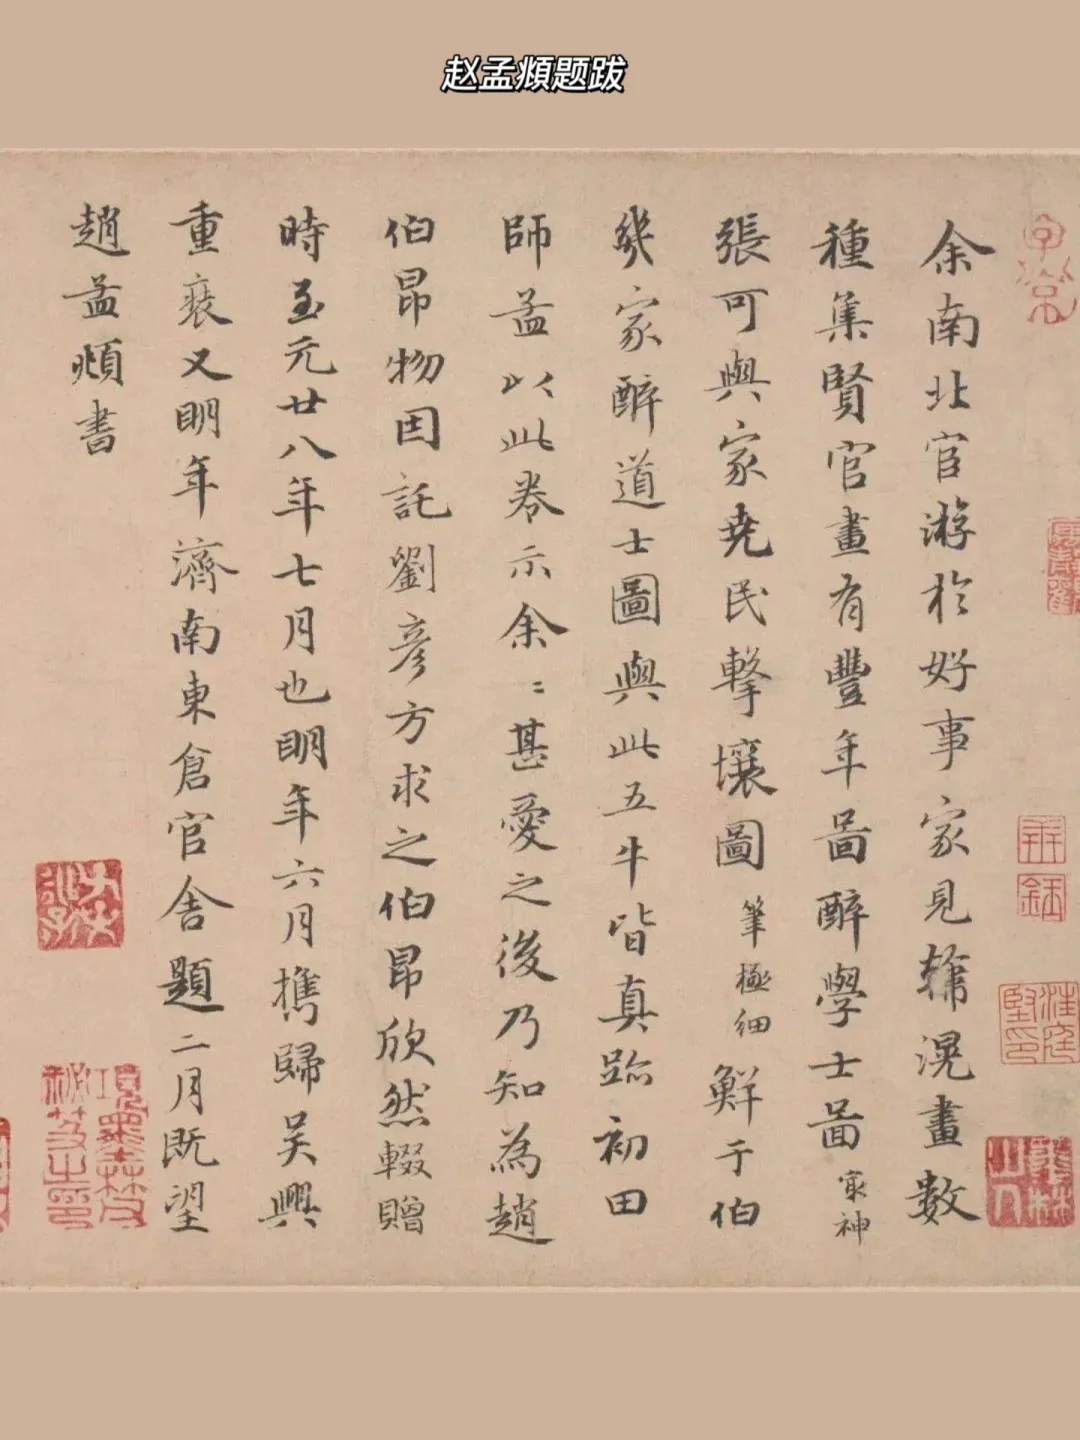 赵孟頫题跋
余南北官游於好事家見韓滉畫數
種集賢官畫有豐年啚醉學士啚㝡神
張可與家尭民擊壤圖筆極細鮮于伯
幾家醉道士圖與此五牛皆真跡初田
師孟以此卷示余〻甚愛之後乃知為趙
伯昂物因託劉彦方求之伯昂欣然輟贈
時至元廿八年七月也明年六月攜歸吴興
重裝又明年濟南東倉官舍題二月既望
趙孟頫書
項墨林父
秘笈之印